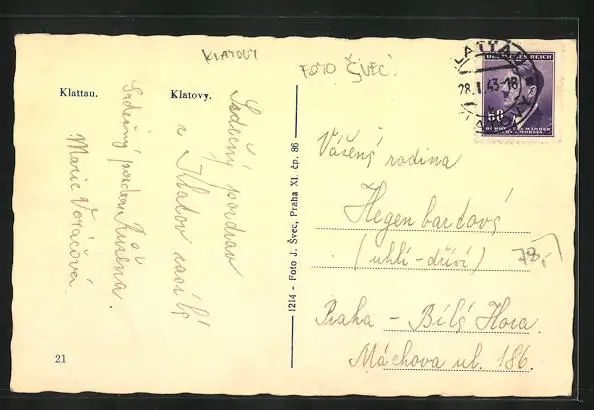 KLATOVY
FOTO ŠVEC.
Klattau.
Klatovy.
Srdečný pozdrav
z Klatov zasílá
Srdečný pozdrav Růžena.
Marie Voráčová
1214 - Foto J. Švec, Praha XI. čp. 86
DEUTSCHES REICH
KLATTAU
28.I.43-18
KLATOVY
60
BÖHMEN UND MÄHREN
ČECHY A MORAVA
Vážená rodina
Hegenbartová
(uhlí-dříví)
78,-
Praha - Bílá Hora.
Máchova ul. 186.
21